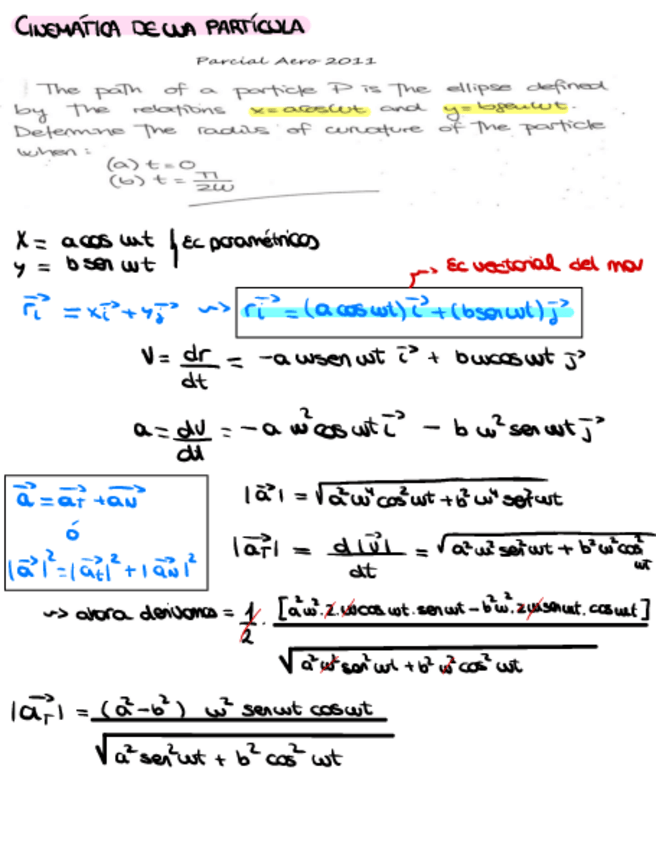 CINEMÁTICA DE UNA PARTÍCULA
Parcial Aero 2011
The path of a particle P is the ellipse defined
by the relations x=acosωt and y=bsenωt.
Determine the radius of curvature of the particle
when:
(a) t=0
(b) t = π/2ω
x = a cos ωt | Ec paramétricas
y = b sen ωt
Ec vectorial del mov
r⃗ᵢ = xi⃗ + yj⃗ ⇝ r⃗ᵢ = (a cos ωt) i⃗ + (b sen ωt) j⃗
V = dr/dt = -a ω sen ωt i⃗ + b ω cos ωt j⃗
a = dv/dt = -a ω² cos ωt i⃗ - b ω² sen ωt j⃗
a⃗ = a⃗_T + a⃗_N
ó
|a⃗|² = |a⃗_t|² + |a⃗_N|²
|a⃗| = √(a²ω⁴cos²ωt + b²ω⁴sen²ωt)
|a⃗_T| = d|v⃗|/dt = √(a²ω²sen²ωt + b²ω²cos²ωt)
⇝ ahora derivamos = 1/2 · [a²ω².2.ωcos ωt.sen ωt - b²ω.2ωsen ωt.cos ωt] / √(a²ω²sen²ωt + b²ω²cos²ωt)
|a⃗_T| = (a²-b²) ω² sen ωt cos ωt / √(a²sen²ωt + b²cos²ωt)